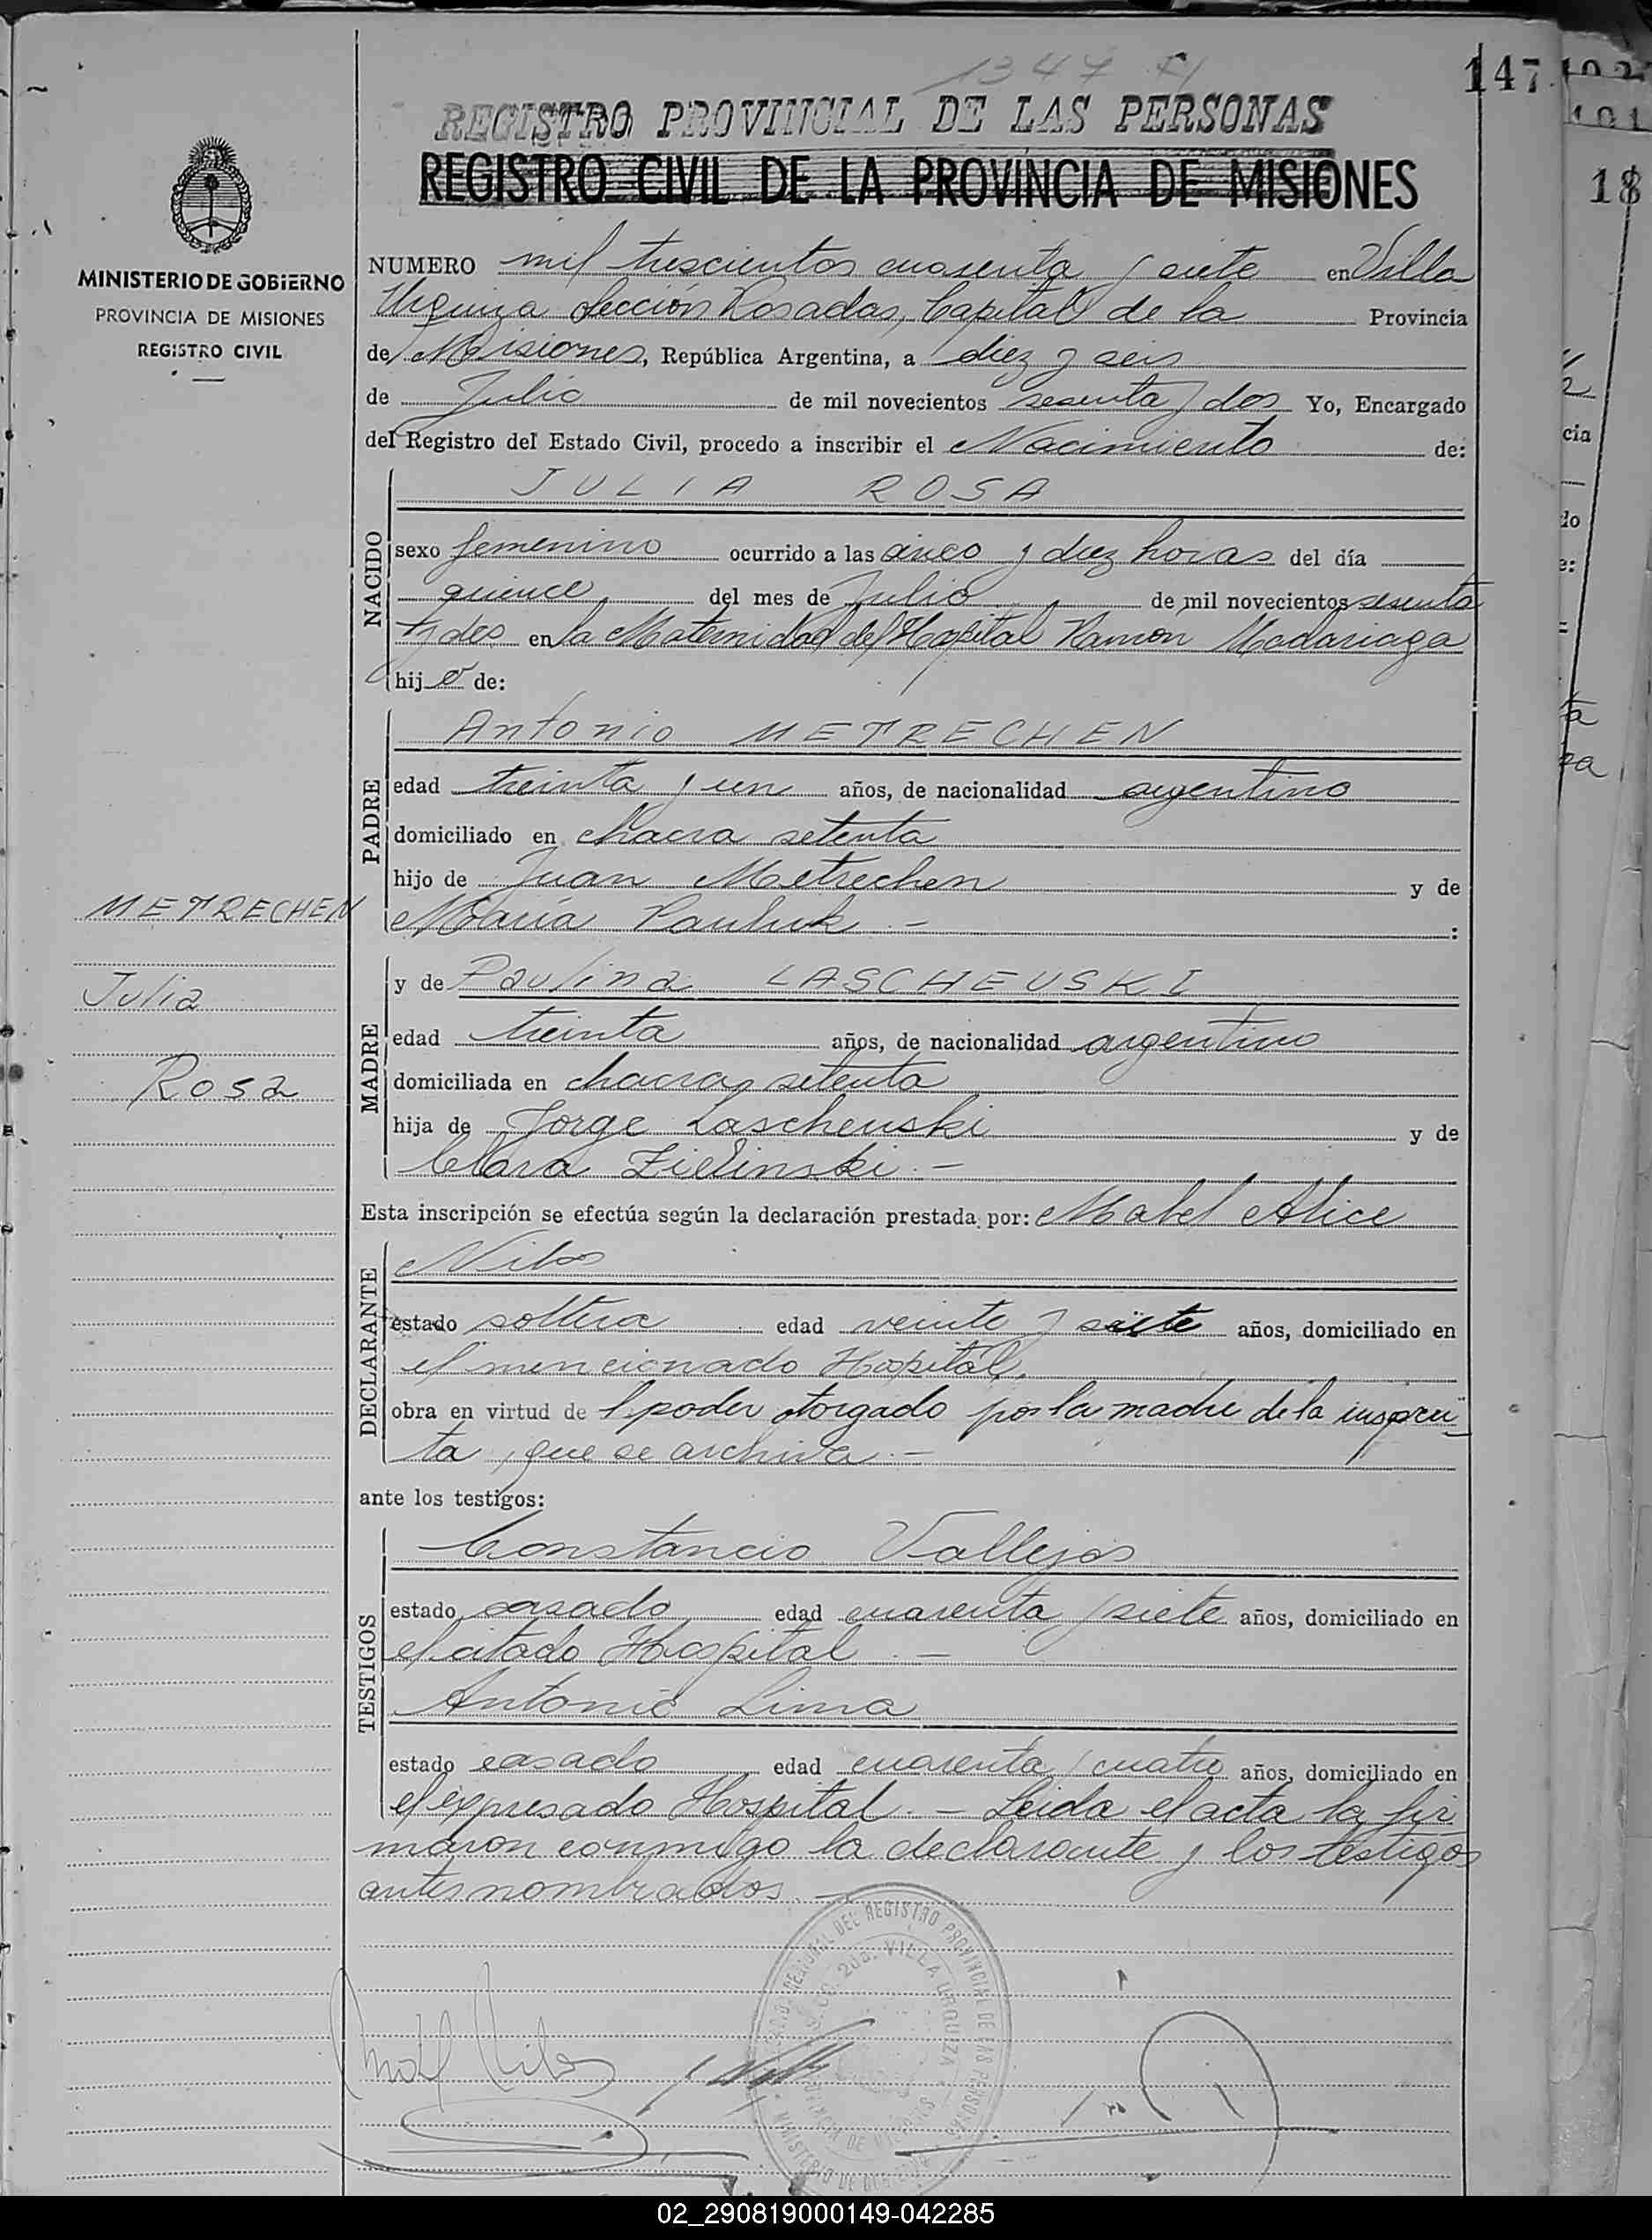 1347
147
REGISTRO PROVINCIAL DE LAS PERSONAS
REGISTRO CIVIL DE LA PROVINCIA DE MISIONES
MINISTERIO DE GOBIERNO
PROVINCIA DE MISIONES
REGISTRO CIVIL
NUMERO mil trescientos cuarenta y siete en Villa
Urquiza Sección Posadas, Capital de la Provincia
de Misiones, República Argentina, a diez y seis
de Julio de mil novecientos sesenta y dos Yo, Encargado
del Registro del Estado Civil, procedo a inscribir el Nacimiento de:
NACIDO
JULIA ROSA
sexo femenino ocurrido a las cinco y diez horas del día
quince del mes de Julio de mil novecientos sesenta
y dos en la Maternidad del Hospital Ramón Madariaga
hija de:
PADRE
Antonio METRECHEN
edad treinta y un años, de nacionalidad argentino
domiciliado en chacra setenta
hijo de Juan Metrechen y de
María Pauluk.-:
METRECHEN
Julia
Rosa
MADRE
y de Paulina LASCHEUSKI
edad treinta años, de nacionalidad argentino
domiciliada en chacra setenta
hija de Jorge Lascheuski y de
Clara Zielinski.-
Esta inscripción se efectúa según la declaración prestada por: Mabel Alice
DECLARANTE
Nilos
estado soltera edad veinte y siete años, domiciliado en
el mencionado Hospital.
obra en virtud de l poder otorgado por la madre de la inscrip-
ta, que se archiva.-
ante los testigos:
TESTIGOS
Constancio Vallejos
estado casado edad cuarenta y siete años, domiciliado en
el citado Hospital.-
Antonio Lima
estado casado edad cuarenta y cuatro años, domiciliado en
el expresado Hospital.- Leida el acta la fir
maron conmigo la declarante y los testigos
antes nombrados.-
DEL REGISTRO PROVINCIAL DE LAS PERSONAS
VILLA URQUIZA
02_290819000149-042285